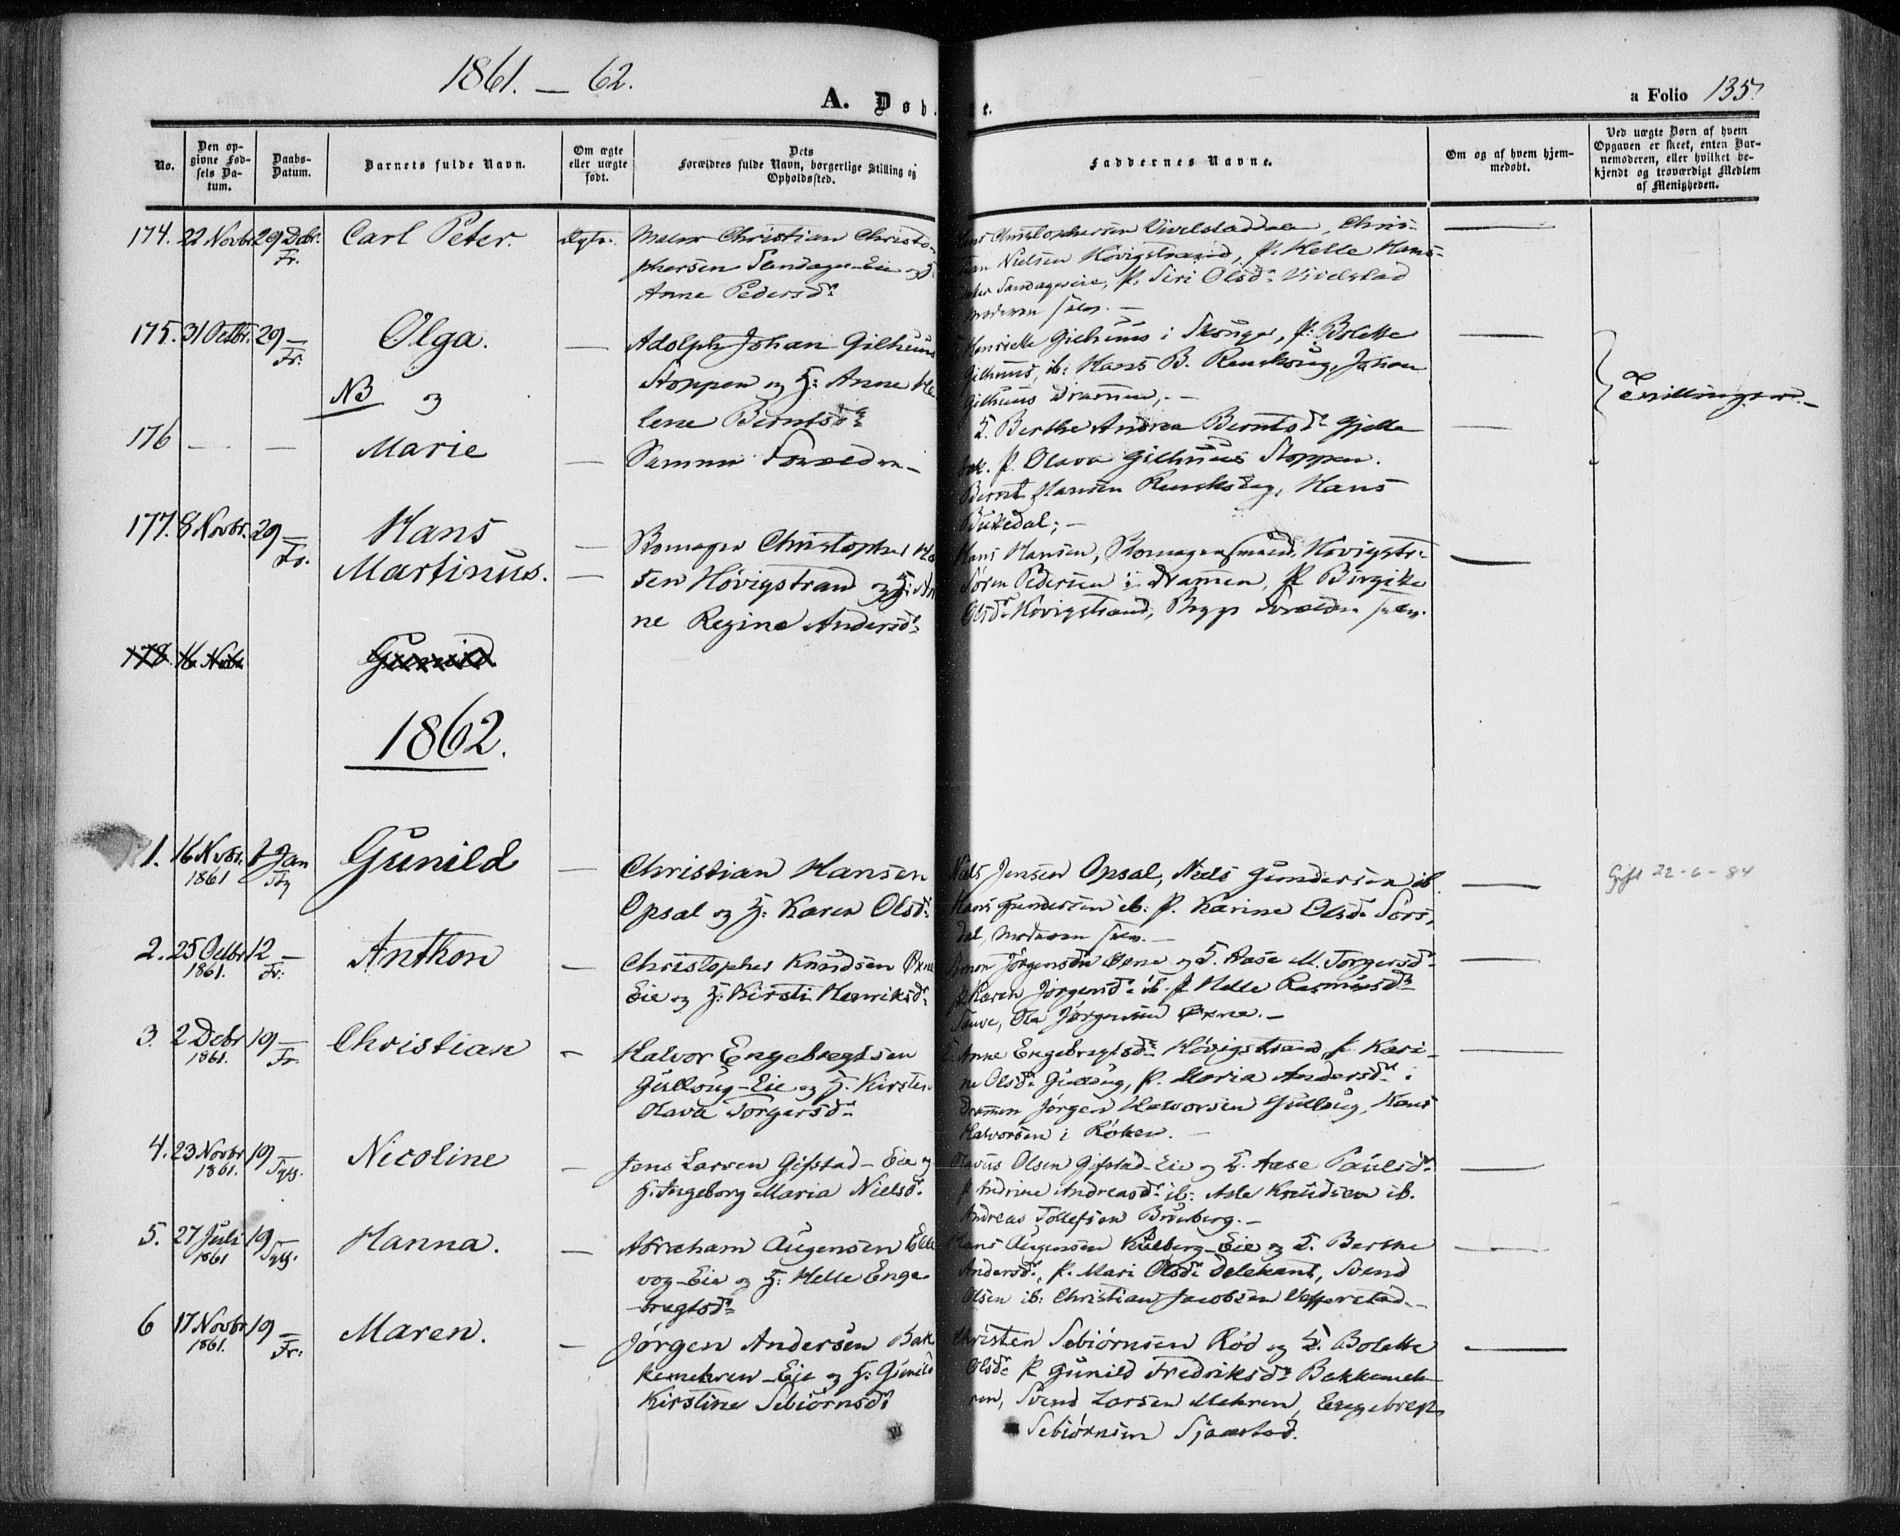 1861. — 62.
A. Døb
te.
a Folio 135.
No.
Den opgivne Fødsels Datum.
Daabs-Datum.
Barnets fulde Navn.
Om ægte eller uægte født.
Dets Forældres fulde Navn, borgerlige Stilling og Opholdssted.
Faddernes Navne.
Om og af hvem hjemmedøbt.
Ved uægte Børn af hvem Opgaven er skeet, enten Barnemoderen, eller hvilket bekjendt og troværdigt Medlem af Menigheden.
174. 22 Novbr. 29 Debr. Fr. Carl Peter. Ægte. Christian Christo-
phersen Sandager-Eie og H:
Anne Pedersdr
Christophersen Vivelstad, Chris-
tian Nielsen Høvigstrand, P. Helle Hans-
Sandagereie, P. Siri Olsdr Vivelstad
Moderen selv. —
175. 31 Octbr. 29 — Fr. Olga. — Adolph Johan Gilhuus
Stoppen og H: Anne He
lene Berntsdr
Henriette Gilhuus i Skouger, P: Bolette
Gilhuus, ib: Hans B. Renskoug, Johan
Gilhuus Drammen. —
NB og
176 — — Marie — Samme Forældre —
Berthe Andrea Berntsdr Gjelle
bek. P. Olava Gilhuus Stoppen.
Bernt Hansen Renskoug, Hans
Buskedal; —
Tvillinger. —
177. 8 Novbr. 29 — Fr. Hans
Martinus. — Skomager Christopher Ha
sen Høvigstrand og H: An
ne Regine Andersdr
Hans Hansen, Skomagersvend, Høvigstr:
Søren Pedersen i Drammen, P. Birgitte
Olsdr Høvigstrand, Begge Forældre selv.
178. 16 Novbr Gunild
1862.
1. 16 Nvbr. 1861 1 Jan Gunild — Christian Hansen
Opsal og H: Karen Olsdr
Niels Jensen Opsal, Niels Gundersen ib.
Hans Gundersen ib: P. Karine Olsdr Sørs-
dal, Moderen selv. —
Gift 22-6-84
2. 25 Octbr 1861. 12 — Fr: Anthon — Christopher Knudsen Øxne
Eie og H: Kirsti Henriksdr
Simon Jørgensen Øxne og H. Aase M. Torgersdr
P. Karen Jørgensdr ib. P. Helle Rasmusdr
Ola Jørgensen Øxne. —
3. 2 Debr 1861. 19 — Fr. Christian — Halvor Engebregtsen
Gulloug-Eie og H. Kirsten
Olava Torgersdr
Anne Engebregtsdr Høvigstrand P. Kari-
ne Olsdr Gulloug, P. Maria Andersdr i
Drammen Jørgen Halvorsen Gulloug, Hans
Halvorsen i Røken. —
4. 23 Novbr 1861. 19 — Nicoline — Jens Larsen Gifstad-Eie og
H. Ingeborg Maria Nielsdr
Olavus Olsen Gifstad-Eie og H. Aase Paulsdr
P. Andrine Andreasdr ib: Asle Knudsen ib.
Andreas Tollefsen Bruberg. —
5. 27 Juli 1861 19 — Hanna. — Abraham Augensen Elle
vog-Eie og H: Helle Enge-
bregtsdr
Hans Augensen Kulberg-Eie og H. Berthe
Andersdr, P. Mari Olsdr Delekant, Svend
Olsen ib: Christian Jacobsen
6 17 Novbr 1861. 19 — Fr: Maren. — Jørgen Andersen Bak
kemehren-Eie og H: Gunild
Kirstine Sebiørnsdr
Christen Sebiørnsen Rød og H. Bolette
Olsdr P. Gunild Fredriksdr Bakkemeh-
ren, Svend Larsen Mehren, Engebregt
Sebiørnsen Sjaastad.